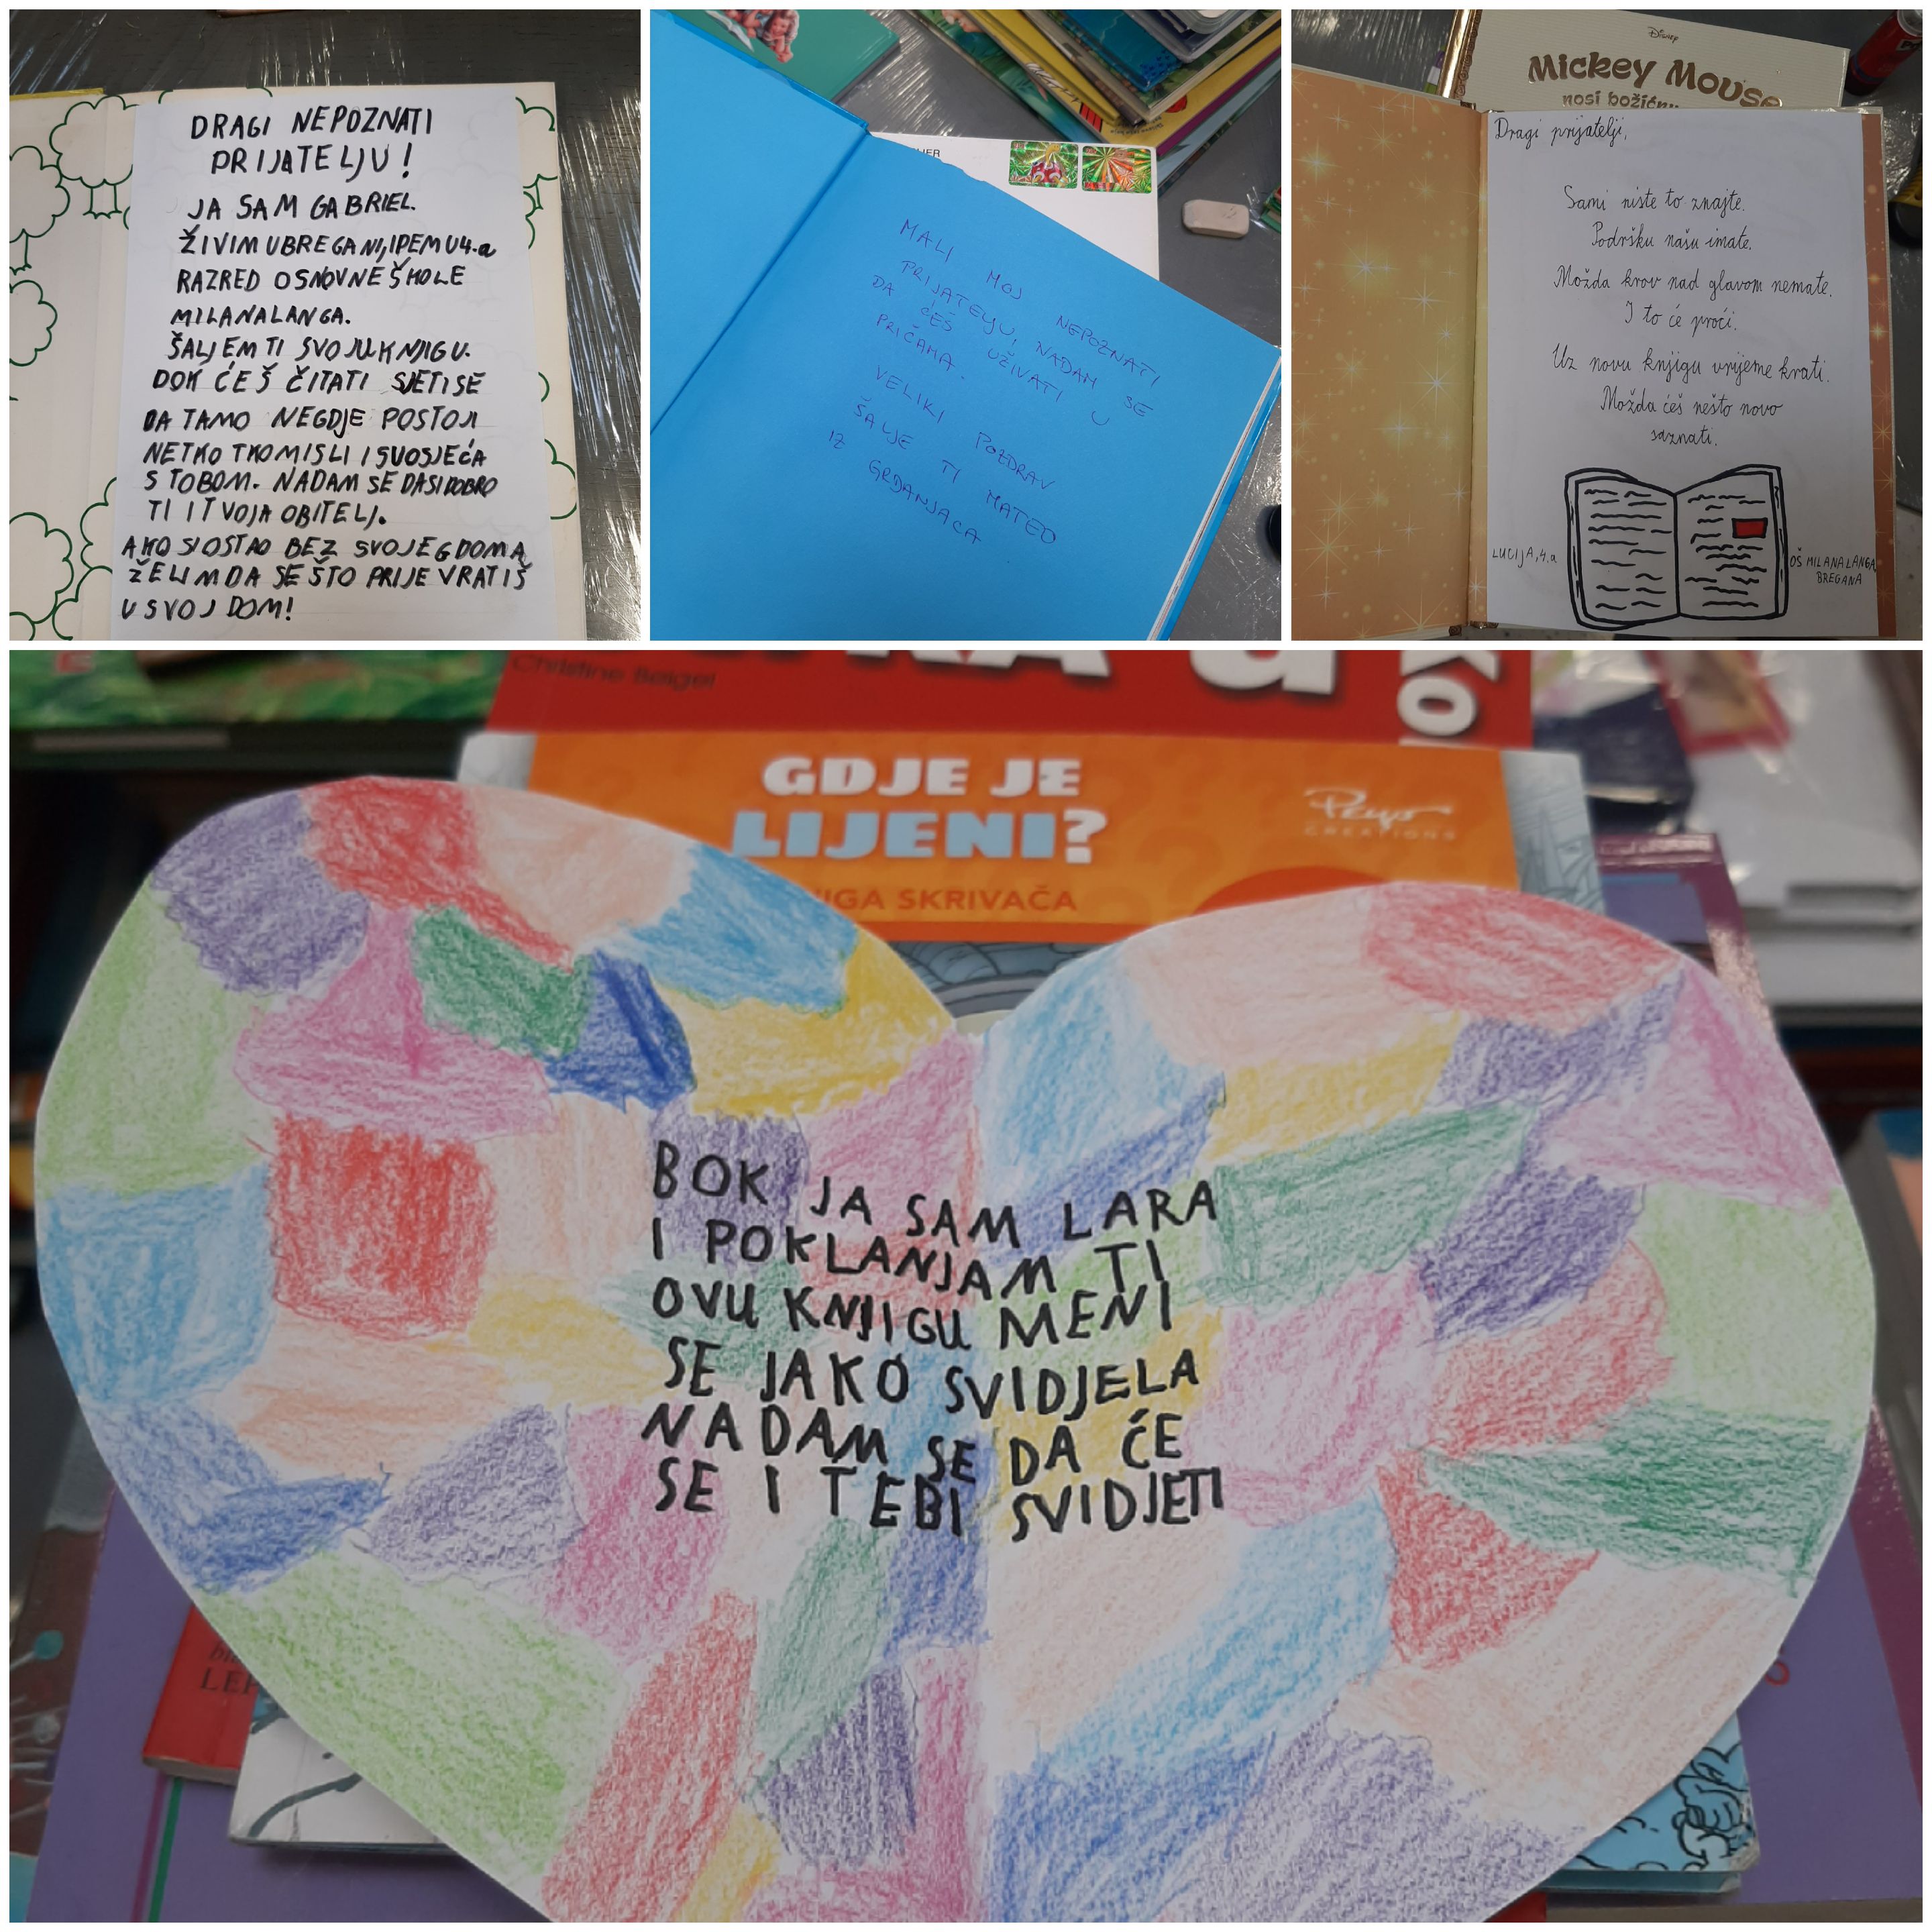 DRAGI NEPOZNATI
PRIJATELJU!
JA SAM GABRIEL.
ŽIVIM U BREGANI, IDEM U 4.a
RAZRED OSNOVNE ŠKOLE
MILANA LANGA.
ŠALJEM TI SVOJU KNJIGU.
DOK ĆEŠ ČITATI SJETI SE
DA TAMO NEGDJE POSTOJI
NETKO TKO MISLI I SUOSJEĆA
S TOBOM. NADAM SE DA SI DOBRO
TI I TVOJA OBITELJ.
AKO SI OSTAO BEZ SVOJEG DOMA
ŽELIM DA SE ŠTO PRIJE VRATIŠ
U SVOJ DOM!
MALI MOJ NEPOZNATI
PRIJATELJU, NADAM SE
DA ĆEŠ UŽIVATI U
PRIČAMA.
VELIKI POZDRAV
ŠALJE TI MATEO
IZ GRDANJACA
Disney
Mickey Mouse
nosi božićnu
Dragi prijatelji,
Sami niste to znajte.
Podršku našu imate.
Možda krov nad glavom nemate.
I to će proći.
Uz novu knjigu vrijeme krati.
Možda ćeš nešto novo
saznati.
LUCIJA, 4.a
OŠ MILANA LANGA
BREGANA
Christine Beigel
GDJE JE
LIJENI?
Peyo
CREATIONS
SKRIVAČA
BOK JA SAM LARA
I POKLANJAM TI
OVU KNJIGU MENI
SE JAKO SVIDJELA
NADAM SE DA ĆE
SE I TEBI SVIDJETI